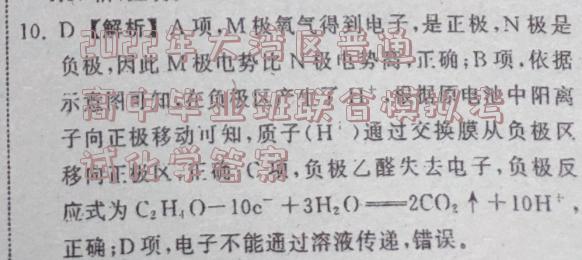 10. D【解析】A项,M极氧气得到电子,是正极,N极是
负极,因此M极电势比N极电势高,正确;B项,依据
示意图可知,在负极区产生了H⁺,根据原电池中阳离
子向正极移动可知,质子(H⁺)通过交换膜从负极区
移向正极区,正确;C项,负极乙醛失去电子,负极反
应式为C₂H₄O—10e⁻+3H₂O══2CO₂↑+10H⁺,
正确;D项,电子不能通过溶液传递,错误。
2022年大湾区普通
高中毕业班联合模拟考
试化学答案